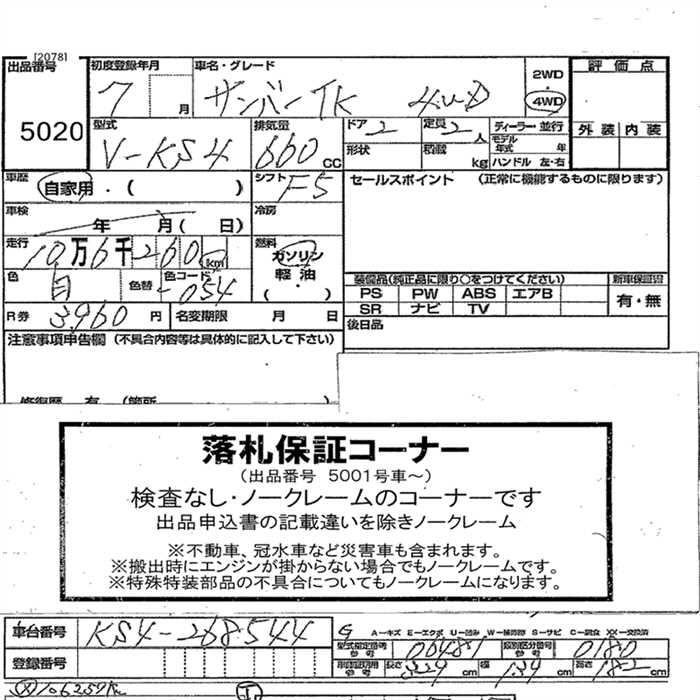 [2078]
出品番号 初度登録年月 車名・グレード 2WD 評価点
5020 7 月 サンバーTK 4WD 4WD
型式 排気量 ドア 定員 ディーラー・並行 外装 内装
V-KS4 660 CC 2 2 人 モデル年式 年
形状 積載 kg ハンドル 左・右
車歴 自家用・( ) シフト F5 セールスポイント (正常に機能するものに限ります)
車検 年 月( 日) 冷房
走行 10万6千260 km 燃料 ガソリン
軽油
( ・ )
色 白 色替 色コード -054
装備品(純正品に限り○をつけてください) 新車保証書
PS PW ABS エアB 有・無
SR ナビ TV
R券 3,960 円 名変期限 月 日 後日品
注意事項申告欄 (不具合内容等は具体的に記入して下さい)
落札保証コーナー
(出品番号 5001号車~)
検査なし・ノークレームのコーナーです
出品申込書の記載違いを除きノークレーム
※不動車、冠水車など災害車も含まれます。
※搬出時にエンジンが掛からない場合でもノークレームです。
※特殊特装部品の不具合についてもノークレームになります。
車台番号 KS4-268544
A-キズ E-エクボ U-凹み W-補修跡 S-サビ C-腐食 XX-交換済
型式指定番号 参考 06487 類別区分番号 参考 0180
登録番号 長さ 329 cm 幅 139 cm 高さ 182 cm